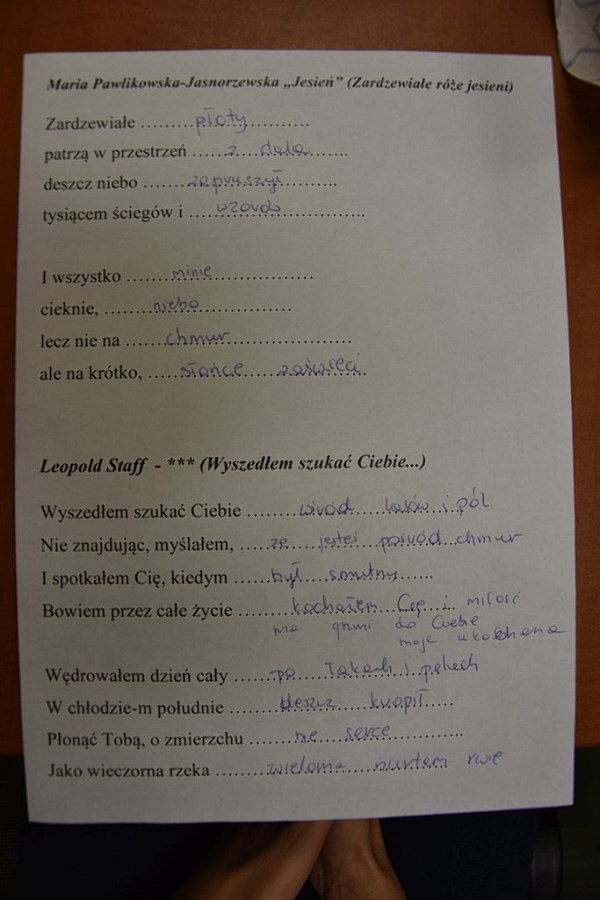 Maria Pawlikowska-Jasnorzewska „Jesień” (Zardzewiałe róże jesieni)
Zardzewiałe ........płoty..............
patrzą w przestrzeń ......z dala........
deszcz niebo ........zapruszył..........
tysiącem ściegów i ......wzorów..............
I wszystko ........minie..................
cieknie, ........niebo..................
lecz nie na .......chmur......................
ale na krótko, ......słońce zaświeci.
Leopold Staff - *** (Wyszedłem szukać Ciebie...)
Wyszedłem szukać Ciebie ........wśród lasów i pól
Nie znajdując, myślałem, .....że jesteś pośród chmur
I spotkałem Cię, kiedym ......był smutny......
Bowiem przez całe życie ........kochałem Cię i miłość
ma do Ciebie
moje
Wędrowałem dzień cały ......po łąkach i polach
W chłodzie-m południe ........deszcz kropił.....
Płonąć Tobą, o zmierzchu .......me serce............
Jako wieczorna rzeka ........wieloma nurtem rwie